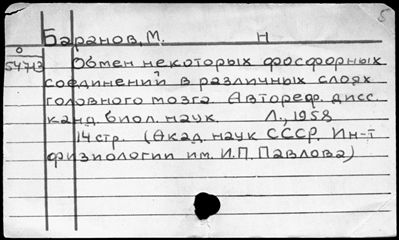 5
Баранов, М. Н
0
54713 Обмен некоторых фосфорных
соединений в различных слоях
головного мозга. Автореф. дисс.
канд. биол. наук. Л., 1958
14 стр. (Акад. наук СССР. Ин-т
физиологии им. И.П. Павлова)